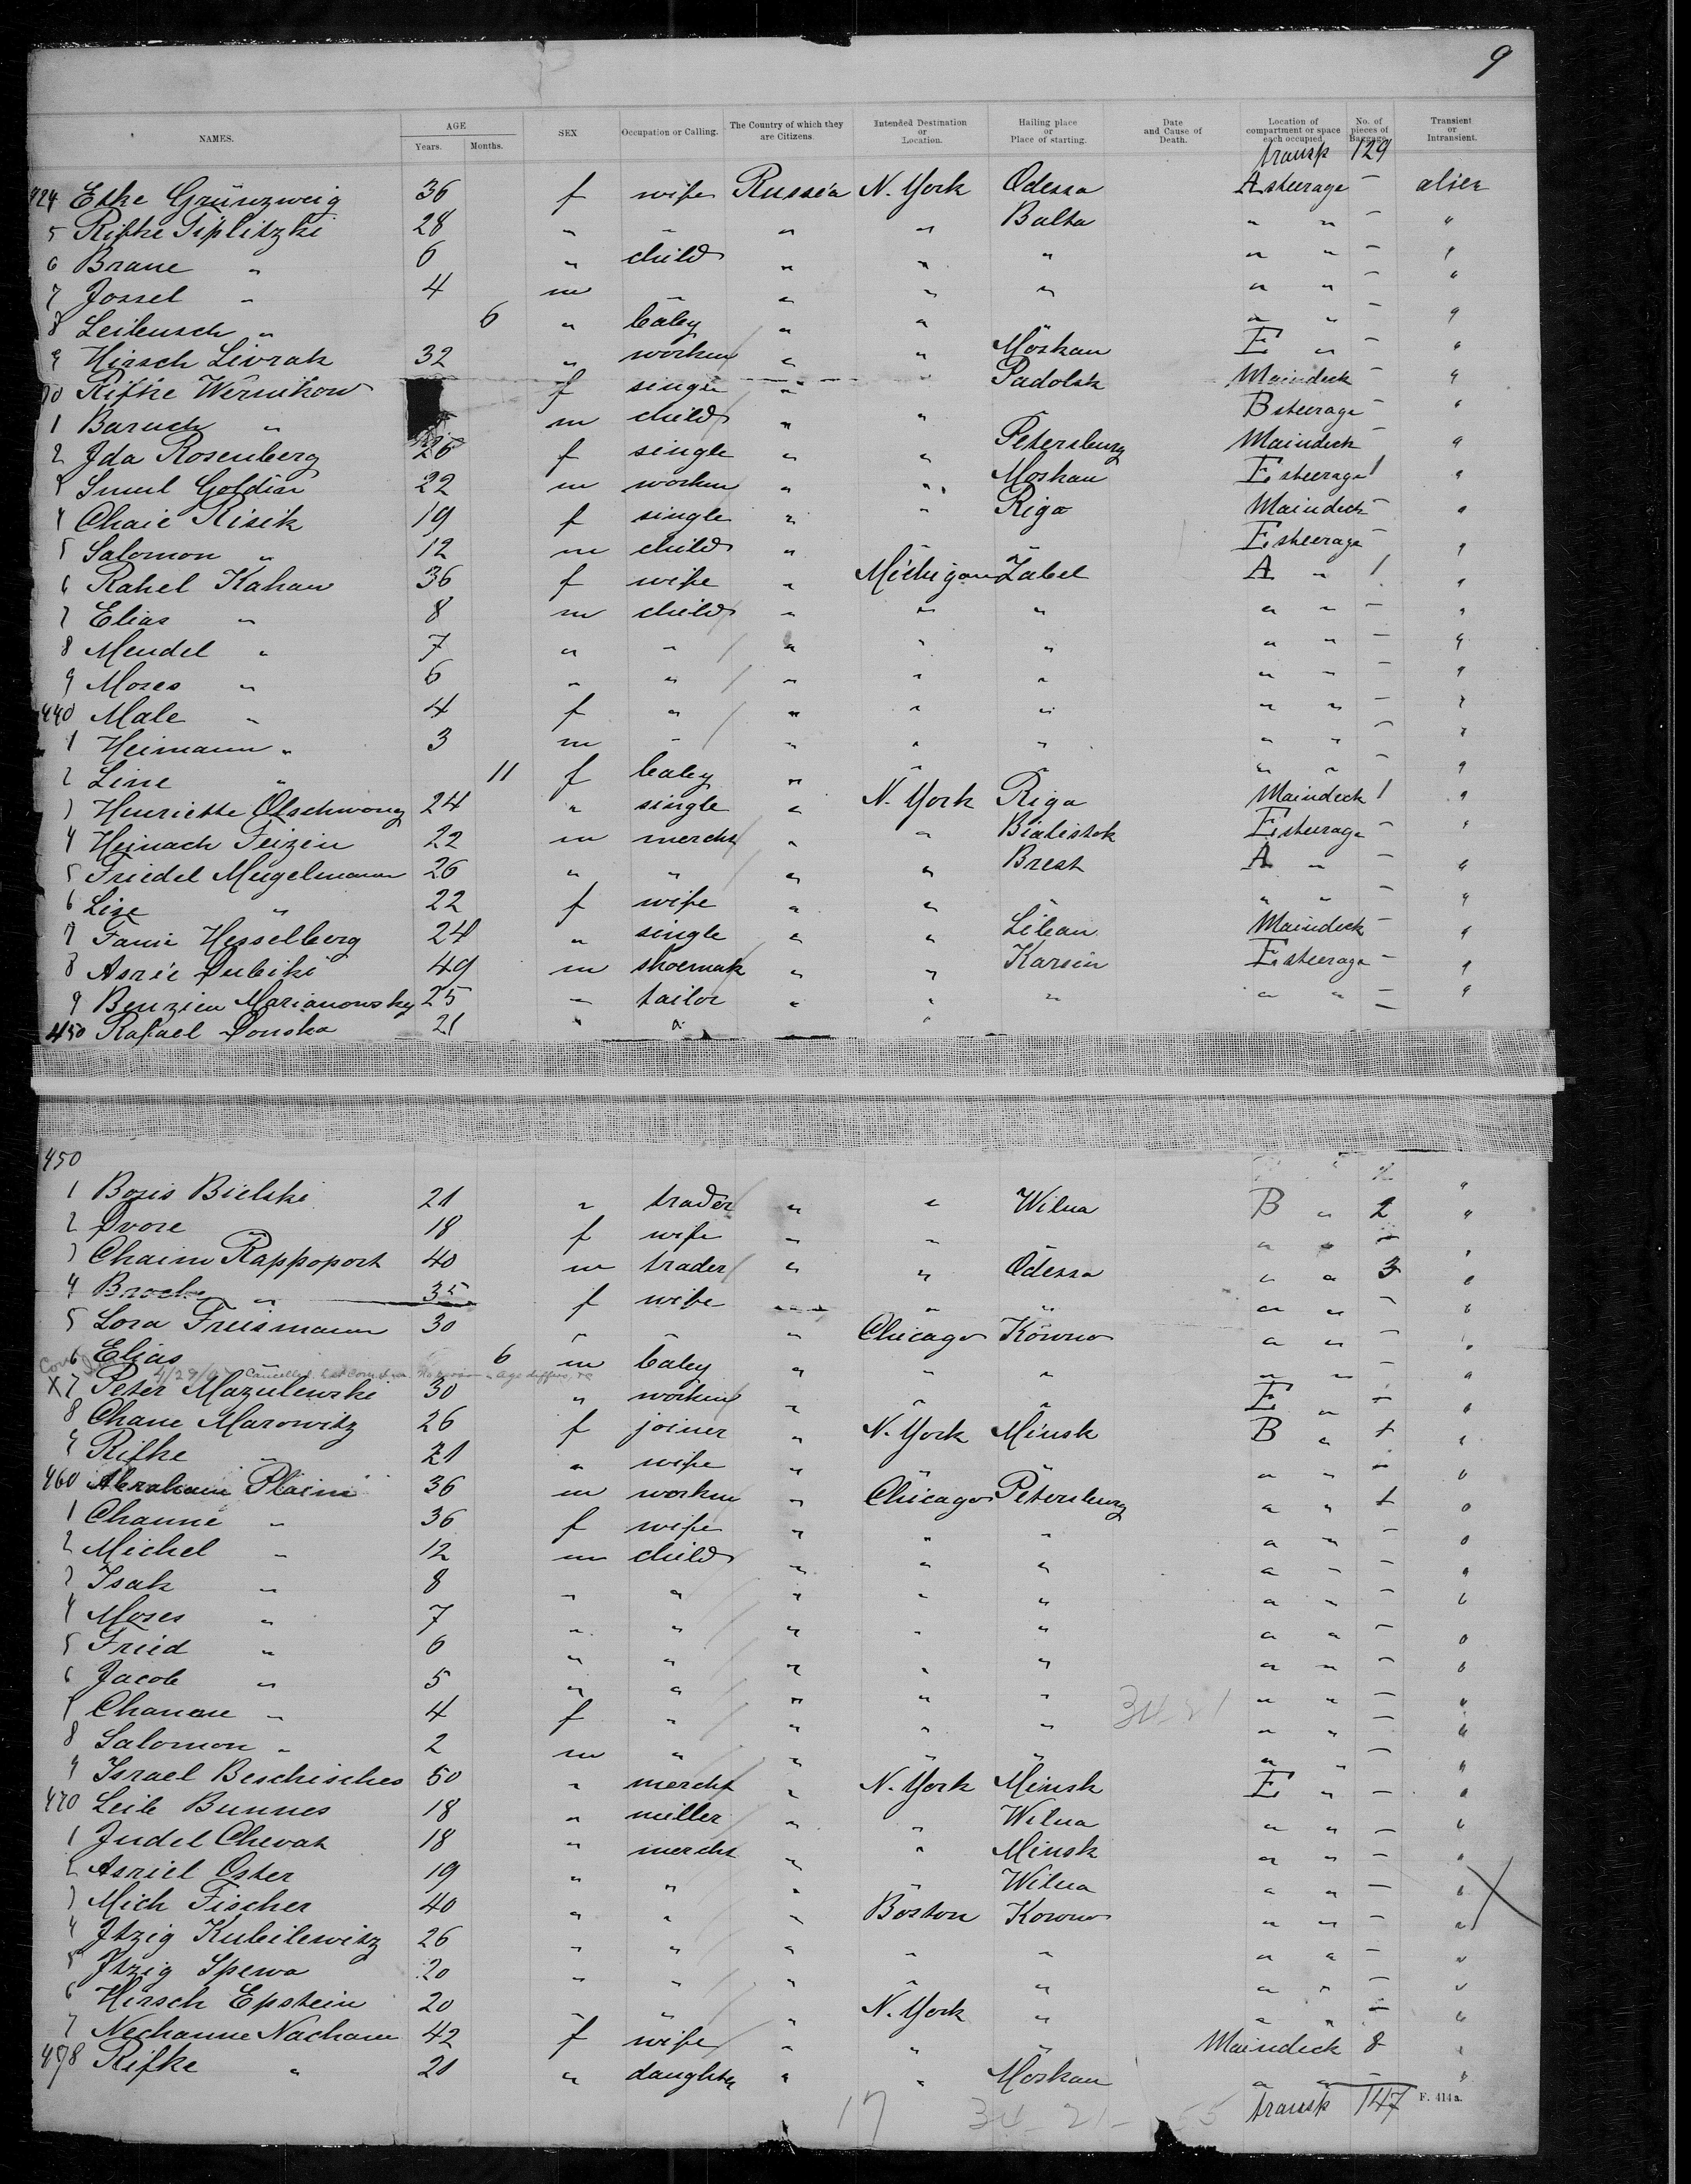 9
NAMES. AGE Years. Months. SEX Occupation or Calling. The Country of which they are Citizens. Intended Destination or Location. Hailing place or Place of starting. Date and Cause of Death. Location of compartment or space each occupied. No. of pieces of Baggage. Transient or Intransient.
transp 129
424 Etke Grünzweig 36 f wife Russia N. York Odessa A steerage –
5 Rifke Tiplitzki 28 " " " " Balta " " – "
6 Brane " 6 " child " " " " " – "
7 Jossel " 4 m " " " " " " – "
8 Leibusch " 6 " baby " " " " " – "
9 Hirsch Livrak 32 " workm " " Moskau E " – "
30 Rifke Wernikow f single " " Padolsk Maindeck – "
1 Baruch " m child " " " B steerage – "
2 Ida Rosenberg 26 f single " " Petersburg Maindeck – "
3 Smul Goldin 22 m workm " " Moskau E steerage 1 "
4 Chaie Risik 19 f single " " Riga Maindeck – "
5 Salomon " 12 m child " " " E steerage – "
6 Rahel Kahan 36 f wife " Michigan Zabel A " 1 "
7 Elias " 8 m child " " " " " – "
8 Mendel " 7 " " " " " " " – "
9 Moses " 6 " " " " " " " – "
440 Male " 4 f " " " " " " – "
1 Heimann " 3 m " " " " " " – "
2 Line " 11 f baby " " " " " – "
3 Henriette Olschwong 24 " single " N. York Riga Maindeck 1 "
4 Heinach Feizin 22 m mercht " " Bialistok E steerage – "
5 Friedel Meigelmann 26 " " " " Brest A " – "
6 Lise " 22 f wife " " " " " – "
7 Fanie Hesselberg 24 " single " " Libau Maindeck – "
8 Asrie Dubiki 49 m shoemak " " Karsin E steerage – "
9 Benzien Marianowsky 25 " tailor " " " " " – "
450 Rafael Donska 21 " " " "
450
1 Boris Bielski 21 " trader " " Wilna B " 2 "
2 Dvore 18 f wife " " " " " – "
3 Chaim Rappoport 40 m trader " " Odessa " " 3 "
4 Broche " 35 f wife " " " " " – "
5 Lora Freismann 30 " " " Chicago Kowno " " – "
6 Elias 6 m baby " " " " " – "
4/29/ Cancelled age differs
X 7 Peter Mazulewski 30 " workm " " " E " – "
8 Chane Marowitz 26 f joiner " N. York Minsk B " "
9 Rifke " 21 " wife " " " " " – "
460 Abraham Plaini 36 m workm " Chicago Petersburg " " "
1 Channe " 36 f wife " " " " " – "
2 Michel " 12 m child " " " " " – "
3 Isak " 8 " " " " " " " – "
4 Moses " 7 " " " " " " " – "
5 Fried " 6 " " " " " " " – "
6 Jacob " 5 " " " " " " " – "
7 Chanene " 4 f " " " " " " – "
8 Salomon " 2 m " " " " " " – "
9 Israel Beschisches 50 " mercht " N. York Minsk E " – "
470 Leib Bunnes 18 " miller " " Wilna " " – "
1 Judel Chevat 18 " mercht " " Minsk " " – "
2 Asriel Oster 19 " " " " Wilna " " – "
3 Mich Fischer 40 " " " Boston Kowno " " – "
4 Itzig Kubilewitz 26 " " " " " " " – "
5 Itzig Spewa 20 " " " " " " " – "
6 Hirsch Epstein 20 " " " N. York " " " – "
7 Nechanne Nacham 42 f wife " " " Maindeck 8 "
478 Rifke " 21 " daughter " " Moskau " " – "
17 34 21 transp 147 F. 414 a.